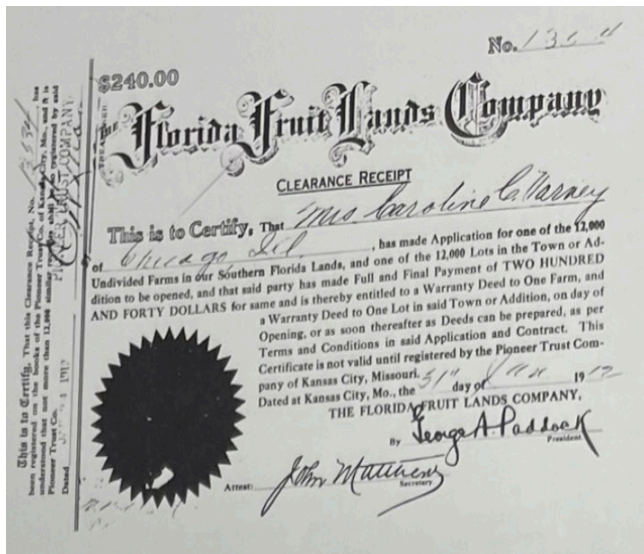 No.
$240.00
The Florida Fruit Lands Company
TREASURER
CLEARANCE RECEIPT
This is to Certify, That Mrs Caroline C. Varney
of Chicago Ill. , has made Application for one of the 12,000
Undivided Farms in our Southern Florida Lands, and one of the 12,000 Lots in the Town or Ad-
dition to be opened, and that said party has made Full and Final Payment of TWO HUNDRED
AND FORTY DOLLARS for same and is thereby entitled to a Warranty Deed to One Farm, and
a Warranty Deed to One Lot in said Town or Addition, on day of
Opening, or as soon thereafter as Deeds can be prepared, as per
Terms and Conditions in said Application and Contract. This
Certificate is not valid until registered by the Pioneer Trust Com-
pany of Kansas City, Missouri.
Dated at Kansas City, Mo., the 31" day of Jan 1912
THE FLORIDA FRUIT LANDS COMPANY,
By George A. Paddock
President
Attest: John Matthews
Secretary
This is to Certify, That this Clearance Receipt, No. , has
been registered on the books of the Pioneer Trust Co. of Kansas City, Mo., and it is
understood that not more than 12,000 similar receipts shall be so registered by said
Pioneer Trust Co.
PIONEER TRUST COMPANY
Dated 1912